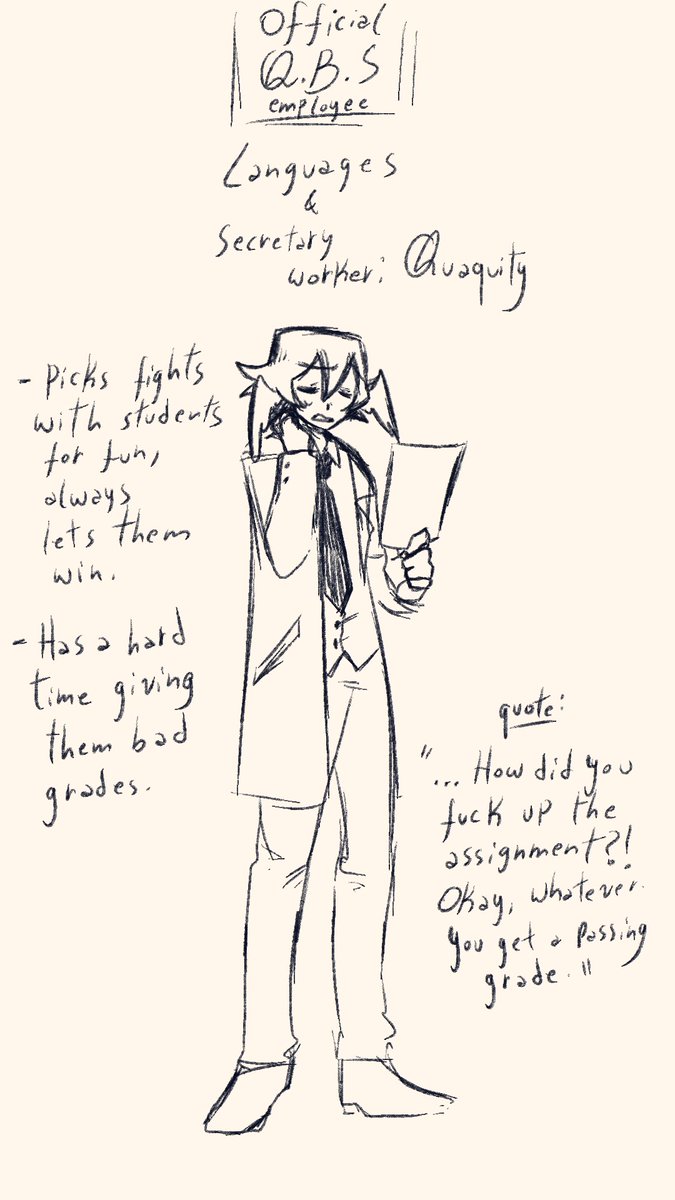 Official
Q.B.S
employee
Languages
&
Secretary
worker: Quaquity
- Picks fights
with students
for fun,
always
lets them
win.
- Has a hard
time giving
them bad
grades.
quote:
"... How did you
fuck up the
assignment?!
Okay, whatever.
You get a passing
grade."